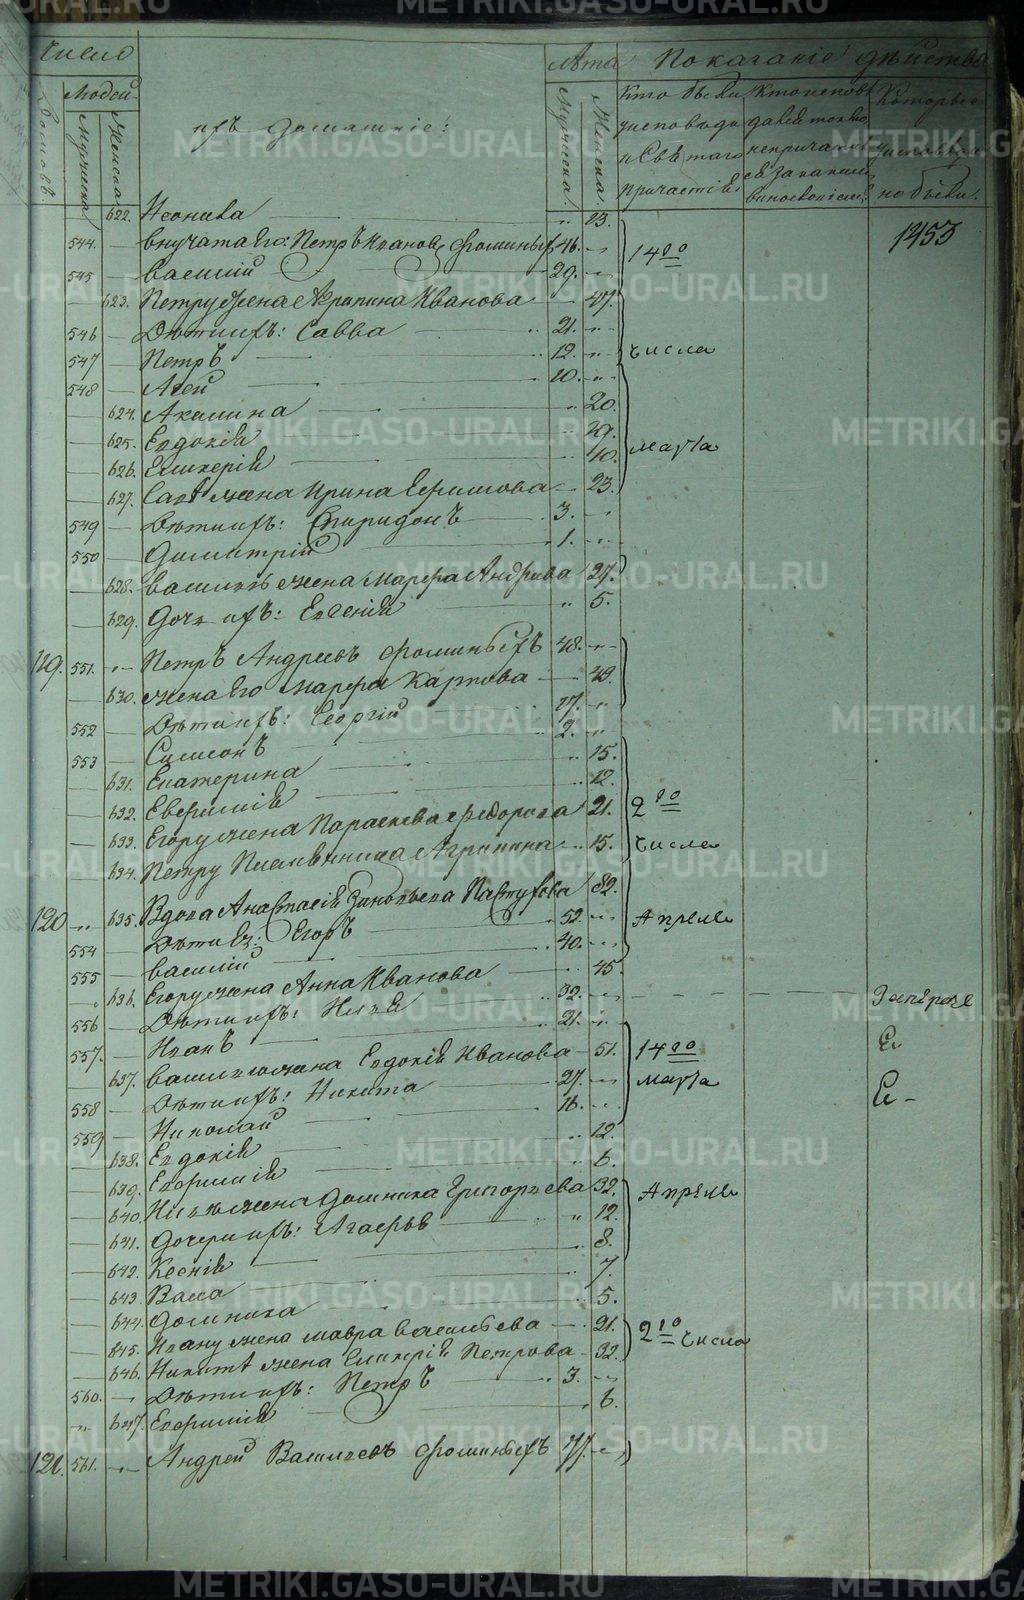 Число
Людей
Домовъ
Мужеска
Женска
ихъ домашніе:
Лѣта
Мужеска
Женска
Показаніе дѣйства
Кто были у исповѣди и Святаго причастія
Которые
у исповѣди не были
1453
622. Неонила „ 23.
544. внучата Его: Петръ Ивановъ Фоминыхъ 46. „
545 Василій 29. „
623. Петру жена Агрипина Иванова 47.
546 Дѣти ихъ: Савва 21. „
547 Петръ 12. „
548 Агей 10. „
624. Акилина „ 20.
625. Евдокія 19.
626. Гликерія 10.
627. Савѣ жена Ирина Ефимова 23.
549 Дѣти ихъ: Спиридонъ 3. „
550 Димитрій 1. „
628. Василью жена Марфа Андреева 27.
629. Дочь ихъ: Евгенія „ 5.
14го числа марта
119. 551. Петръ Андреевъ Фоминыхъ 48. „
630. жена Его Марфа Карпова 49.
552 Дѣти ихъ: Георгій 17. „
553 Симеонъ 2. „
631. Екатерина „ 15.
632. Евфимія „ 12.
633. Егору жена Параскева Федорова 21.
634. Петру Племянница Агрипина 15.
2го числа Апреля
120 „ 635. Вдова Анастасія Зиновьева Пастухова 82.
554 Дѣти Ея: Егоръ 52. „
555 Василій 40. „
636. Егору жена Анна Иванова 45.
556 Дѣти ихъ: Илья 32. „
557. Иванъ 21. „
637. Василью жена Евдокія Иванова 51.
558 Дѣти ихъ: Никита 27. „
559 Николай 16. „
638. Евдокія „ 12.
639. Евфимія „ 6.
14го марта
640. Ильѣ жена Домника Григорьева 32.
641. Дочери ихъ: Агафья „ 12.
642. Ксенія 8.
643. Васса 7.
644. Домника 5.
Апреля
645. Ивану жена Мавра Васильева 21.
646. Никитѣ жена Гликерія Петрова 32.
2го числа
560. Дѣти ихъ: Петръ 3. „
647. Евфимія 6.
121. 561. Андрей Васильевъ Фоминыхъ 77. „
METRIKI.GASO-URAL.RU